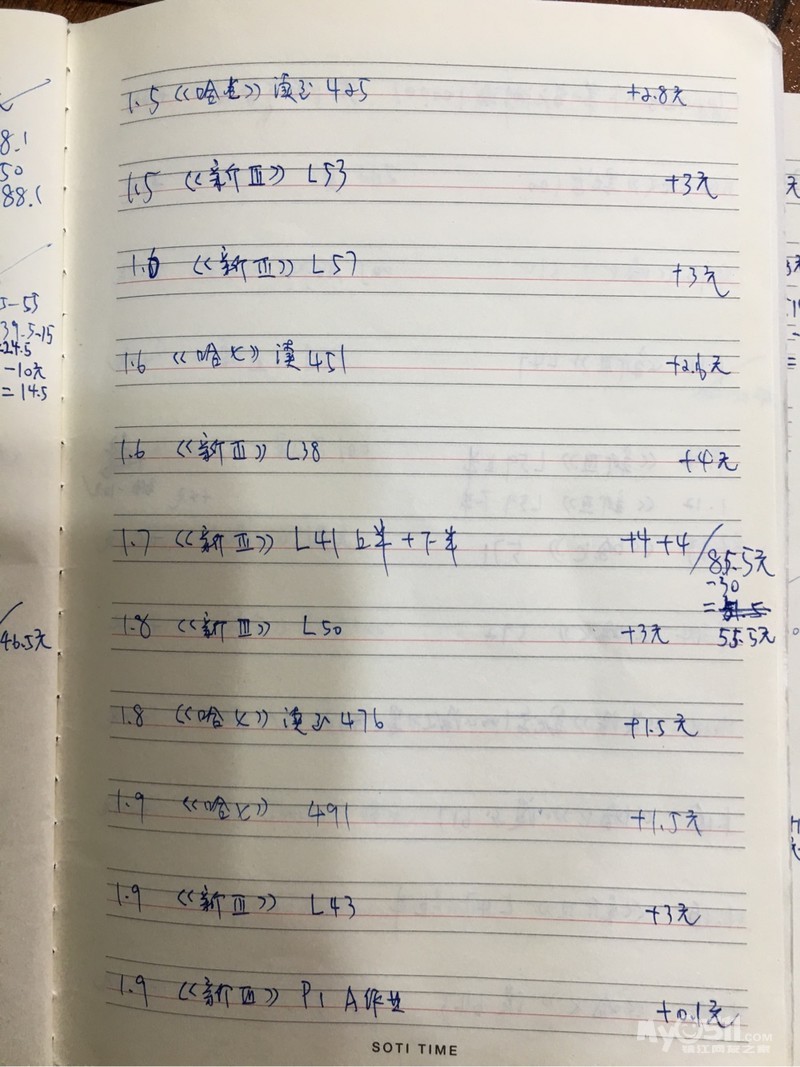 8.1
50
88.1
5-55
39.5-15
=24.5
-10元
=14.5
46.5元
1.5 《哈七》读至425 +2.8元
1.5 《新Ⅲ》 L53 +3元
1.6 《新Ⅲ》 L57 +3元
1.6 《哈七》读451 +2.6元
1.6 《新Ⅲ》 L38 +4元
1.7 《新Ⅲ》 L41上半+下半 +4+4/85.5元
-30
=
55.5元
1.8 《新Ⅲ》 L50 +3元
1.8 《哈七》读至476 +1.5元
1.9 《哈七》 491 +1.5元
1.9 《新Ⅲ》 L43 +3元
1.9 《新Ⅲ》 P1 A作业 +0.1元
SOTI TIME
MyOSH.COM